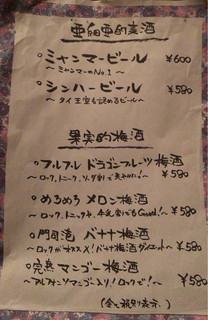 亜細亜的麦酒
○ミャンマービール ¥600
～ミャンマーのNo.1～
○シンハービール ¥580
～タイ王室も認めるビール～
果実的梅酒
○フルフル ドラゴンフルーツ梅酒
～ロック、トニック、ソーダ割で ¥580
○めろめろ メロン梅酒
～ロック、トニックや、牛乳割でもGood!～ ¥580
○門司港 バナナ梅酒
～ロックがオススメ!バナナ梅酒ダイエット～ ¥580
○完熟 マンゴー梅酒
～アルフォンソマンゴー入り!ロックで!～ ¥580
(全て税別表示。)